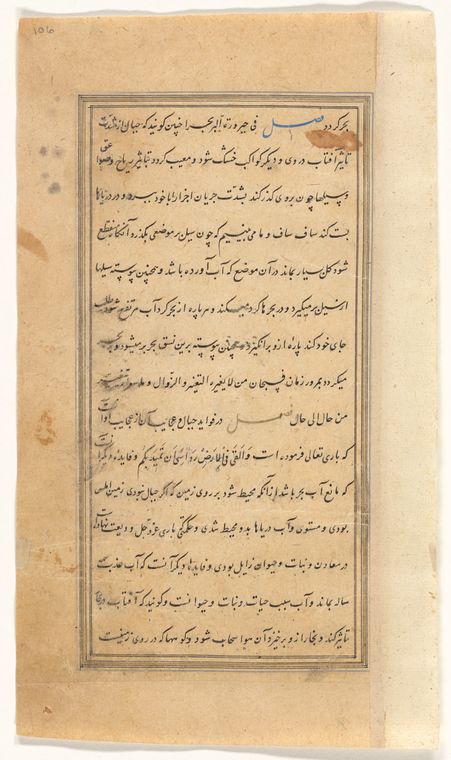 بحر گردد فصل فی صیرورة البر بحرا چنین گویند که جبال از شدت
تاثیر آفتاب در وی و دیگر کواکب خشک شود و معیب گردد بتاثیر ریاح و صواعق
و سیلها چون بروی گذر کند بشدت جریان اجزا را با خود ببرد و در دریاها
بست کند ساف ساف و ما می‌بینیم که چون سیل بر موضعی بگذرد و آنگاه منقطع
شود گل بسیار بماند در آن موضع که آب آورده باشد و همچنین پیوسته سیلها
از میگیرد و در بحرها گرد میکند و هر پاره از بحر که آب مرتفع شود
جای خود کند پاره ازو برانگیزد همچنین پیوسته برین نسق بحر بر میشود و بر بحر
میگردد بمرور زمان فسبحان من لا یغیره التغیر و الزوال و
من حال الی حال فصل در فواید جبال و عجایب آن از عجایب
که باری تعالی فرموده است وَاَلْقٰی فِی الْاَرْضِ رَوَاسِیَ اَن تَمِیدَ بِکُم و فایده دیگر آنست
که مانع آب بحر باشد از آنکه محیط شود بر روی زمین که اگر جبال نبودی زمین املس
بودی و مستوی و آب دریاها بدو محیط شدی و حکمتی باری عز و جل ودیعت نهاده است
در معادن و نبات و حیوان زایل بودی و فایده دیگر آنست که آب عذب
ساله بماند و آب سبب حیات و نبات و حیوانست و گویند که آفتاب در بحار
تاثیر کند و بخار ازو برخیزد آن هوا سحاب شود و کوهها که در روی زمینست